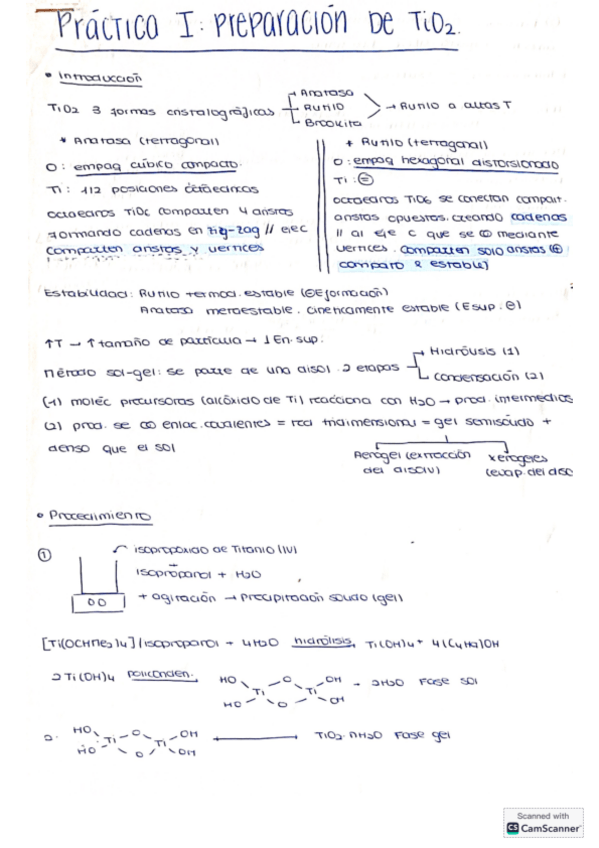 Práctica I: Preparación De TiO2.
• Introducción
TiO2 3 formas cristalográficas
Anatasa
Rutilo
Brookita
→ Rutilo a altas T
* Anatasa (tetragonal)
O: empaq cúbico compacto.
Ti: 1/2 posiciones octaédricas
octaedros TiO6 comparten 4 aristas
formando cadenas en zig-zag // eje c
comparten aristas y vértices
* Rutilo (tetragonal)
O: empaq hexagonal distorsionado
Ti: ⊜
octaedros TiO6 se conectan compart.
aristas opuestas, creando cadenas
// al eje c que se ∞ mediante
vértices. comparten solo aristas (⊕
compacto & estable)
Estabilidad: Rutilo termod. estable (⊖E formación)
Anatasa metaestable. cinéticamente estable (E sup: ⊖)
↑T → ↑ tamaño de partícula → ↓ En. sup:
Método sol-gel: se parte de una disol. 2 etapas
Hidrólisis (1)
Condensación (2)
(1) moléc precursoras (alcóxido de Ti) reacciona con H2O → prod. intermedios
(2) prod. se ∞ enlac. covalentes = red tridimensional = gel semisólido +
denso que el sol
Aerogel (extracción
del disolv)
xerogeles
(evap. del diso
• Procedimiento
①
isopropóxido de Titanio (IV)
isopropanol + H2O
+ agitación → precipitación sólido (gel)
[Ti(OCHMe2)4] / isopropanol + 4H2O hidrólisis, Ti(OH)4 + 4(C4H9)OH
2Ti(OH)4 policonden.
HO O OH
Ti Ti
HO O OH
+ 2H2O Fase sol
2.
HO O OH
Ti Ti
HO O OH
TiO2·nH2O Fase gel
Scanned with
CS CamScanner